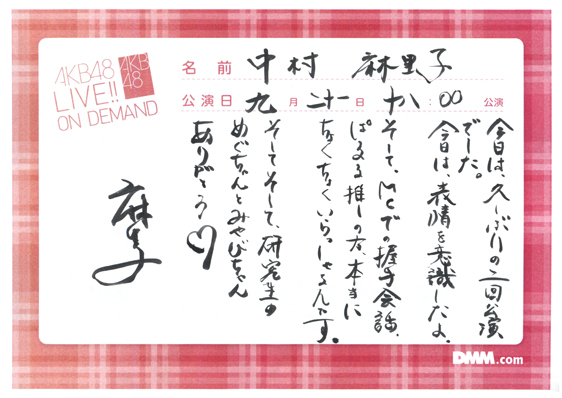 AKB48
LIVE!!
ON DEMAND
AKB
48
名前 中村 麻里子
公演日 九月二十日 十八:00 公演
今日は、久しぶりの二回公演
でした。
今日は、表情を意識したよ。
そして、MCでの握手会話、
ぱるる推しの方、本当に
ちょくちょくいらっしゃるんです。
そしてそして、研究生の
めぐちゃんとみやびちゃん
ありがとう♡
DMM.com